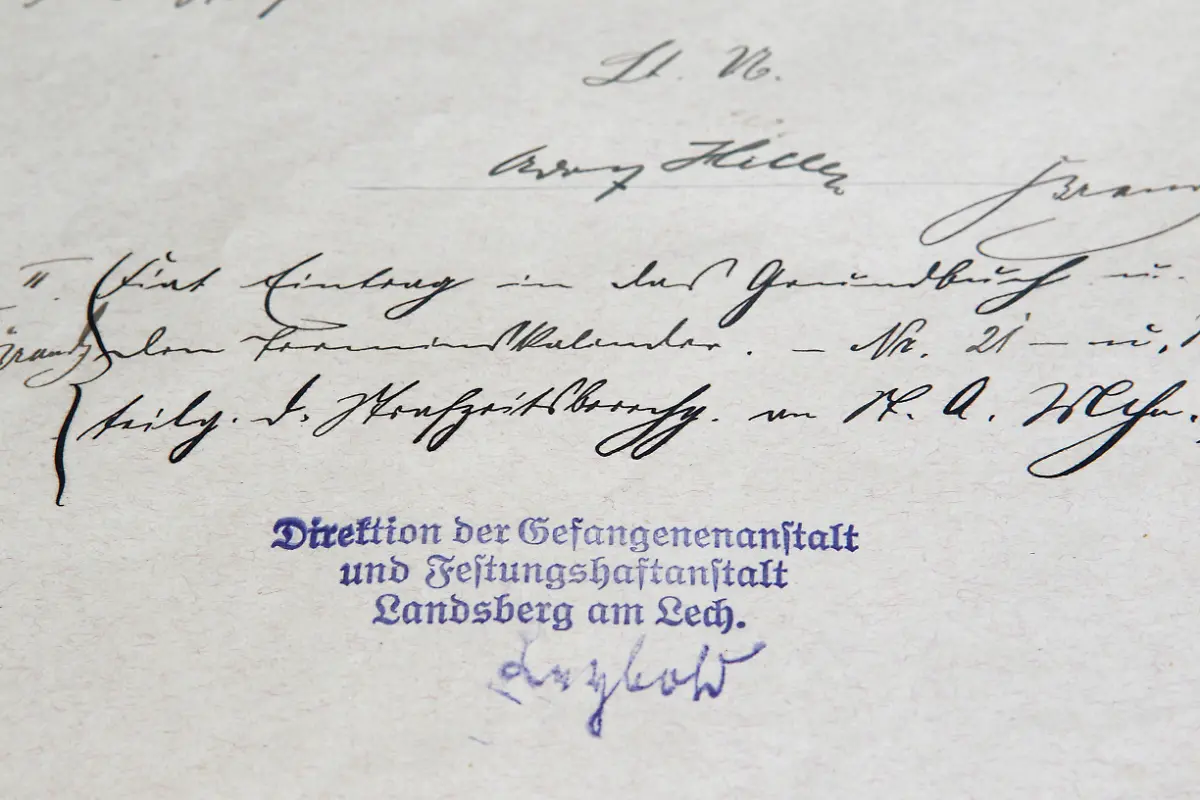 St. N.
Adolf Hitler
II. Fiat Eintrag in das Grundbuch u.
den Terminskalender. – Nr. 21 – u.
teilg. d. Strafzeitsberechg. an St. A. Mchn.
Direktion der Gefangenenanstalt
und Festungshaftanstalt
Landsberg am Lech.
Leybold